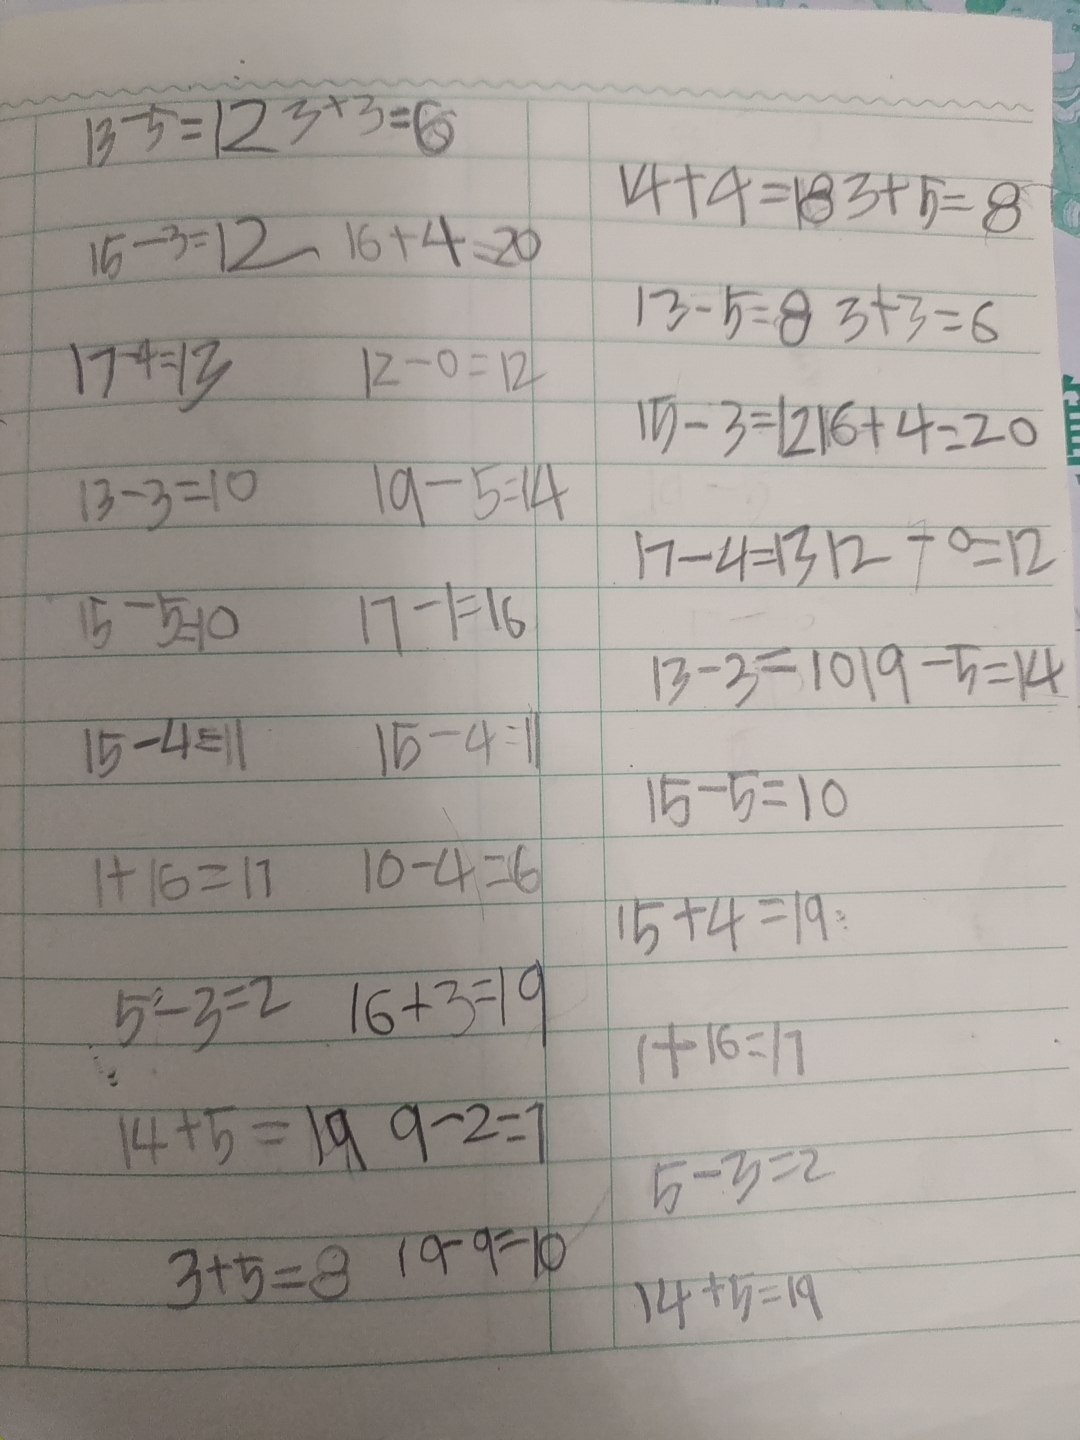 13-5=12 3+3=6
15-3=12 16+4=20
17-4=13 12-0=12
13-3=10 19-5=14
15-5=10 17-1=16
15-4=11 15-4=11
1+16=17 10-4=6
5-3=2 16+3=19
14+5=19 9-2=7
3+5=8 19-9=10
14+4=18 3+5=8
13-5=8 3+3=6
15-3=12 16+4=20
17-4=13 12-0=12
13-3=10 19-5=14
15-5=10
15+4=19
1+16=17
5-3=2
14+5=19